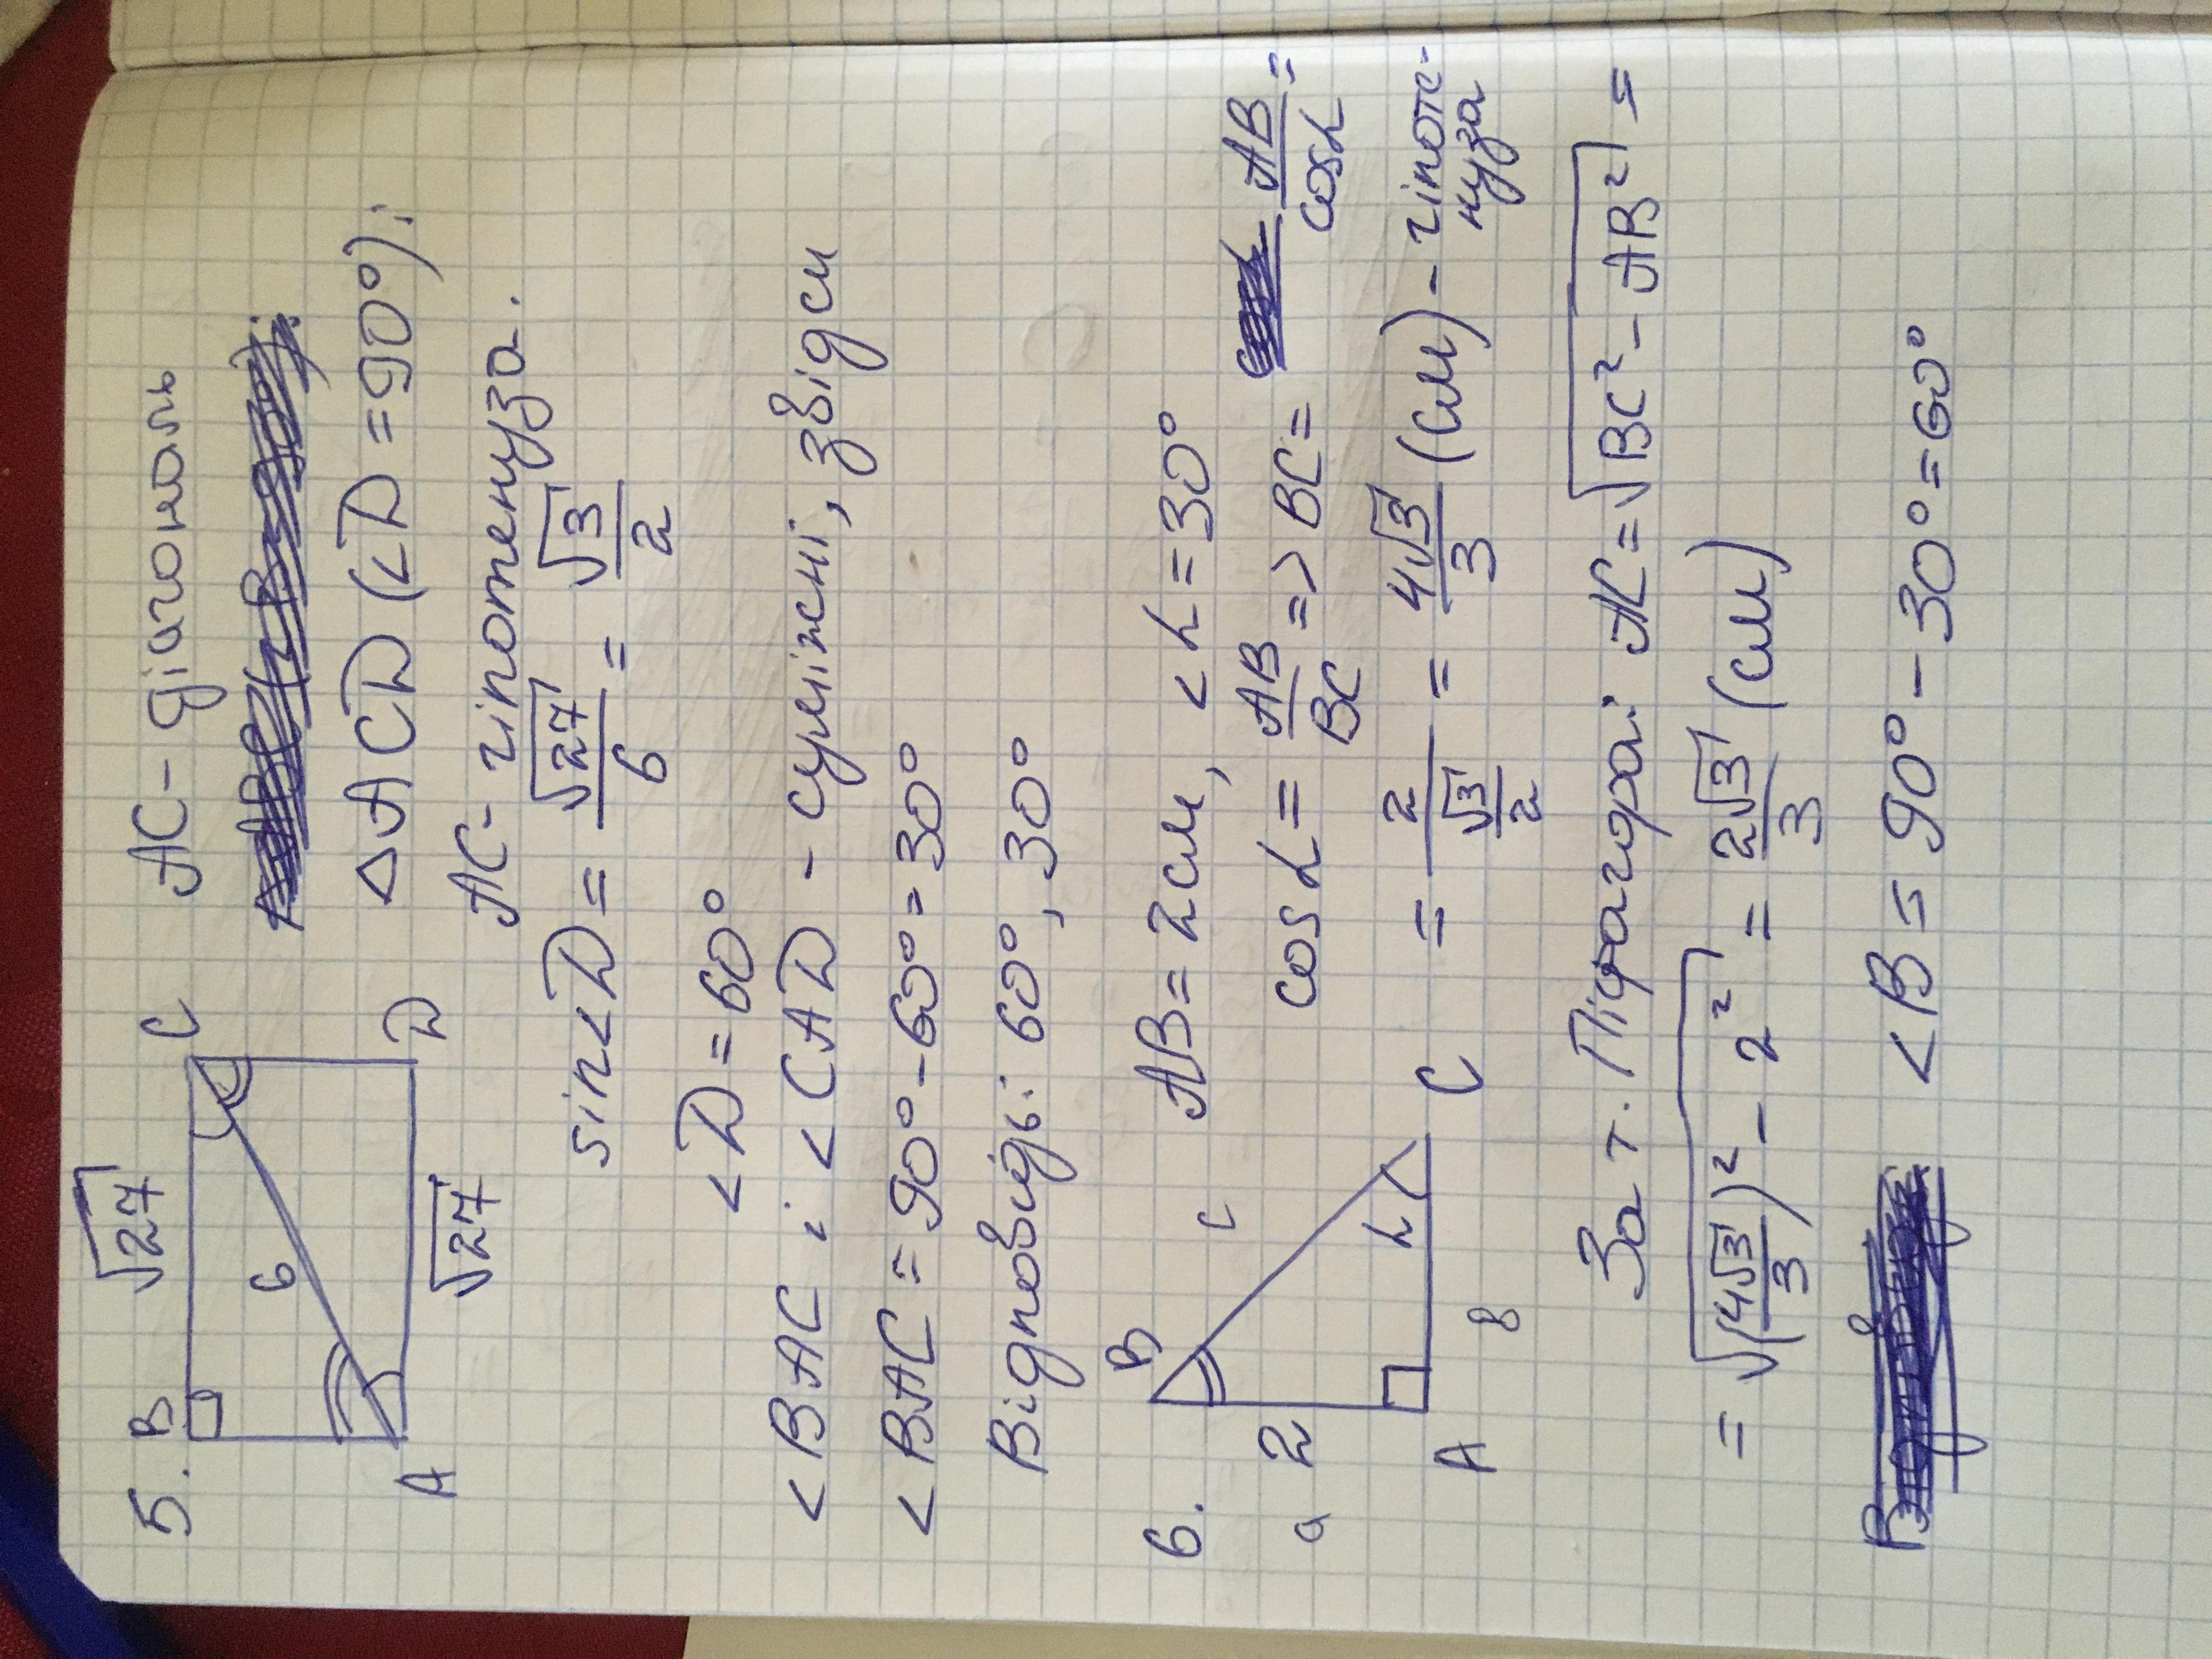 5. B √27 C AC - діагональ
6
△ACD (<D = 90°);
A D
√27
AC - гіпотенуза.
sin<D = √27/6 = √3/2
<D = 60°
<BAC і <CAD - суміжні, звідси
<BAC = 90° - 60° = 30°
Відповідь: 60°, 30°
6. B AB = 2см, <α = 30°
a 2 c cos α = AB/BC => BC = AB/cosα =
α
A в C = 2/(√3/2) = 4√3/3 (см) - гіпоте-
нуза
За т. Піфагора: AC = √(BC² - AB²) =
= √((4√3/3)² - 2²) = 2√3/3 (см)
<B = 90° - 30° = 60°